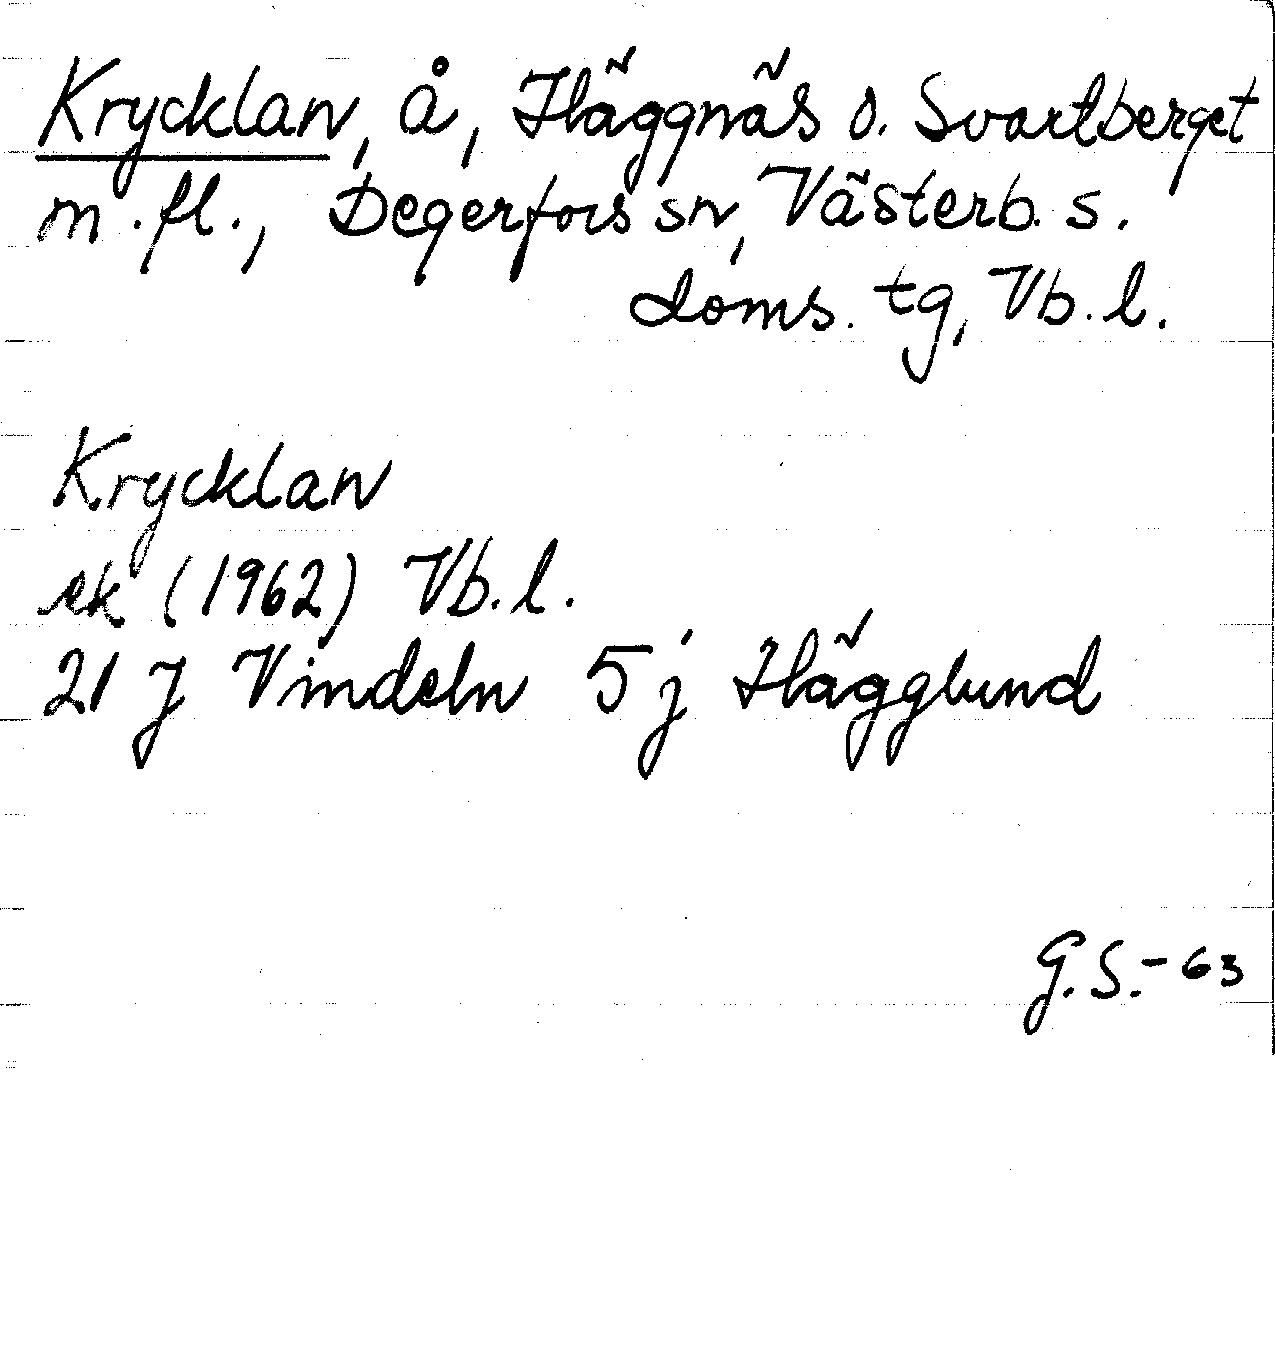 Krycklan, å, Häggnäs o. Svartberget
m.fl., Degerfors sn, Västerb. s.
doms. tg, Vb.l.
Krycklan
ek (1962) Vb.l.
21 J Vindeln 5j Hägglund
G.S.-63